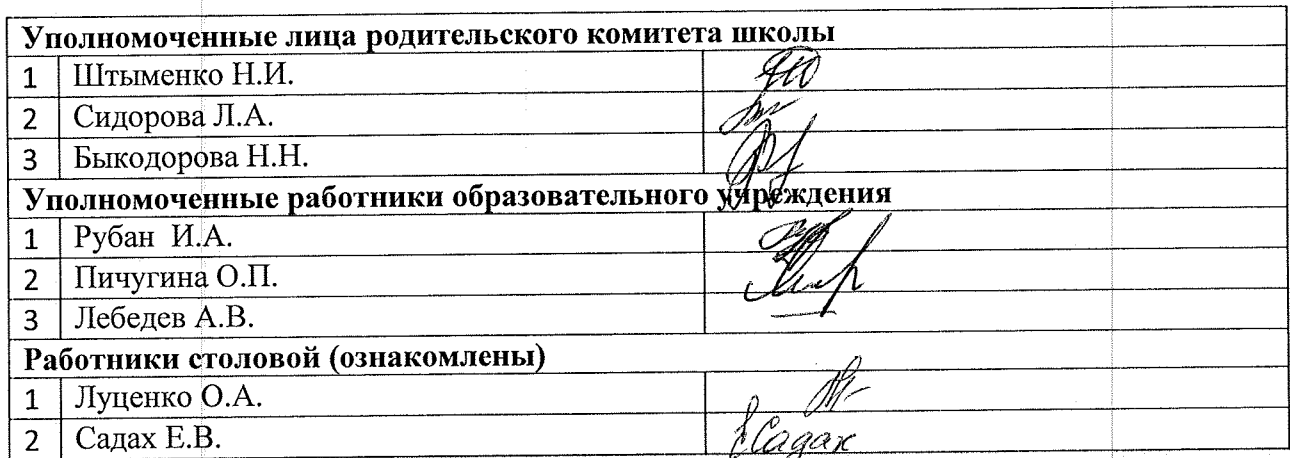 Уполномоченные лица родительского комитета школы
1 Штыменко Н.И.
2 Сидорова Л.А.
3 Быкодорова Н.Н.
Уполномоченные работники образовательного учреждения
1 Рубан И.А.
2 Пичугина О.П.
3 Лебедев А.В.
Работники столовой (ознакомлены)
1 Луценко О.А.
2 Садах Е.В. Садах